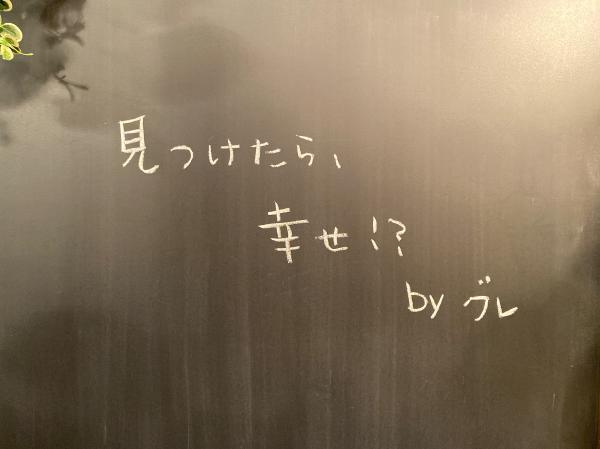 見つけたら、
幸せ!?
by グレ